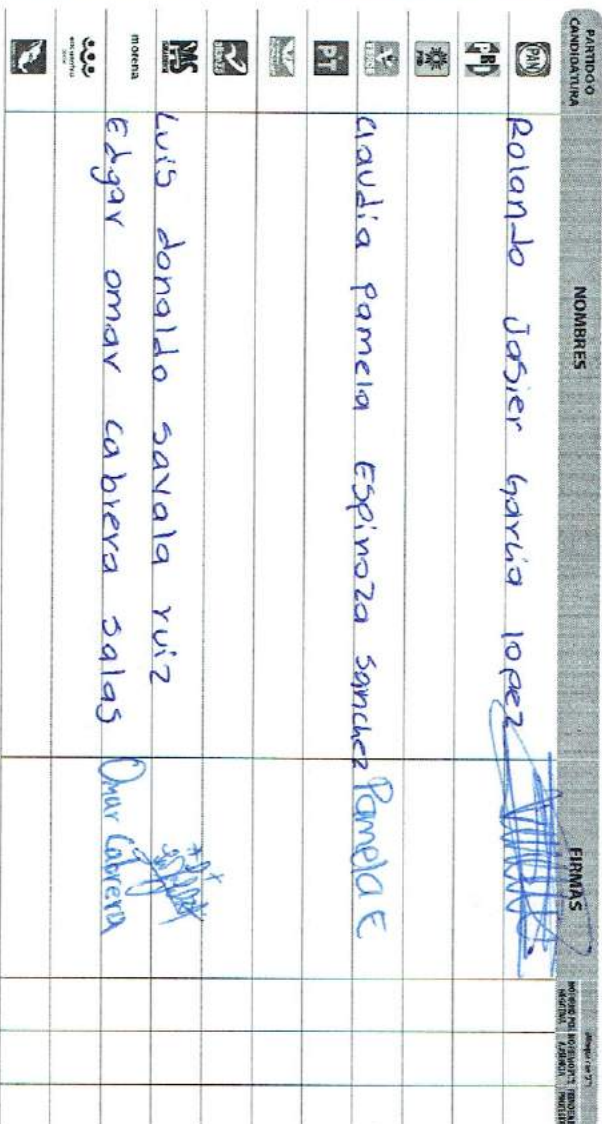 PARTIDO O CANDIDATURA
NOMBRES
FIRMAS
PAN
Rolando Jasier Garcia lopez
PRD
PRI
VERDE
claudia pamela Espinoza sanchez Pamela E
PT
PAS
Luis donaldo savala ruiz
morena
Edgar omar cabrera salas Omar Cabrera
encuentro